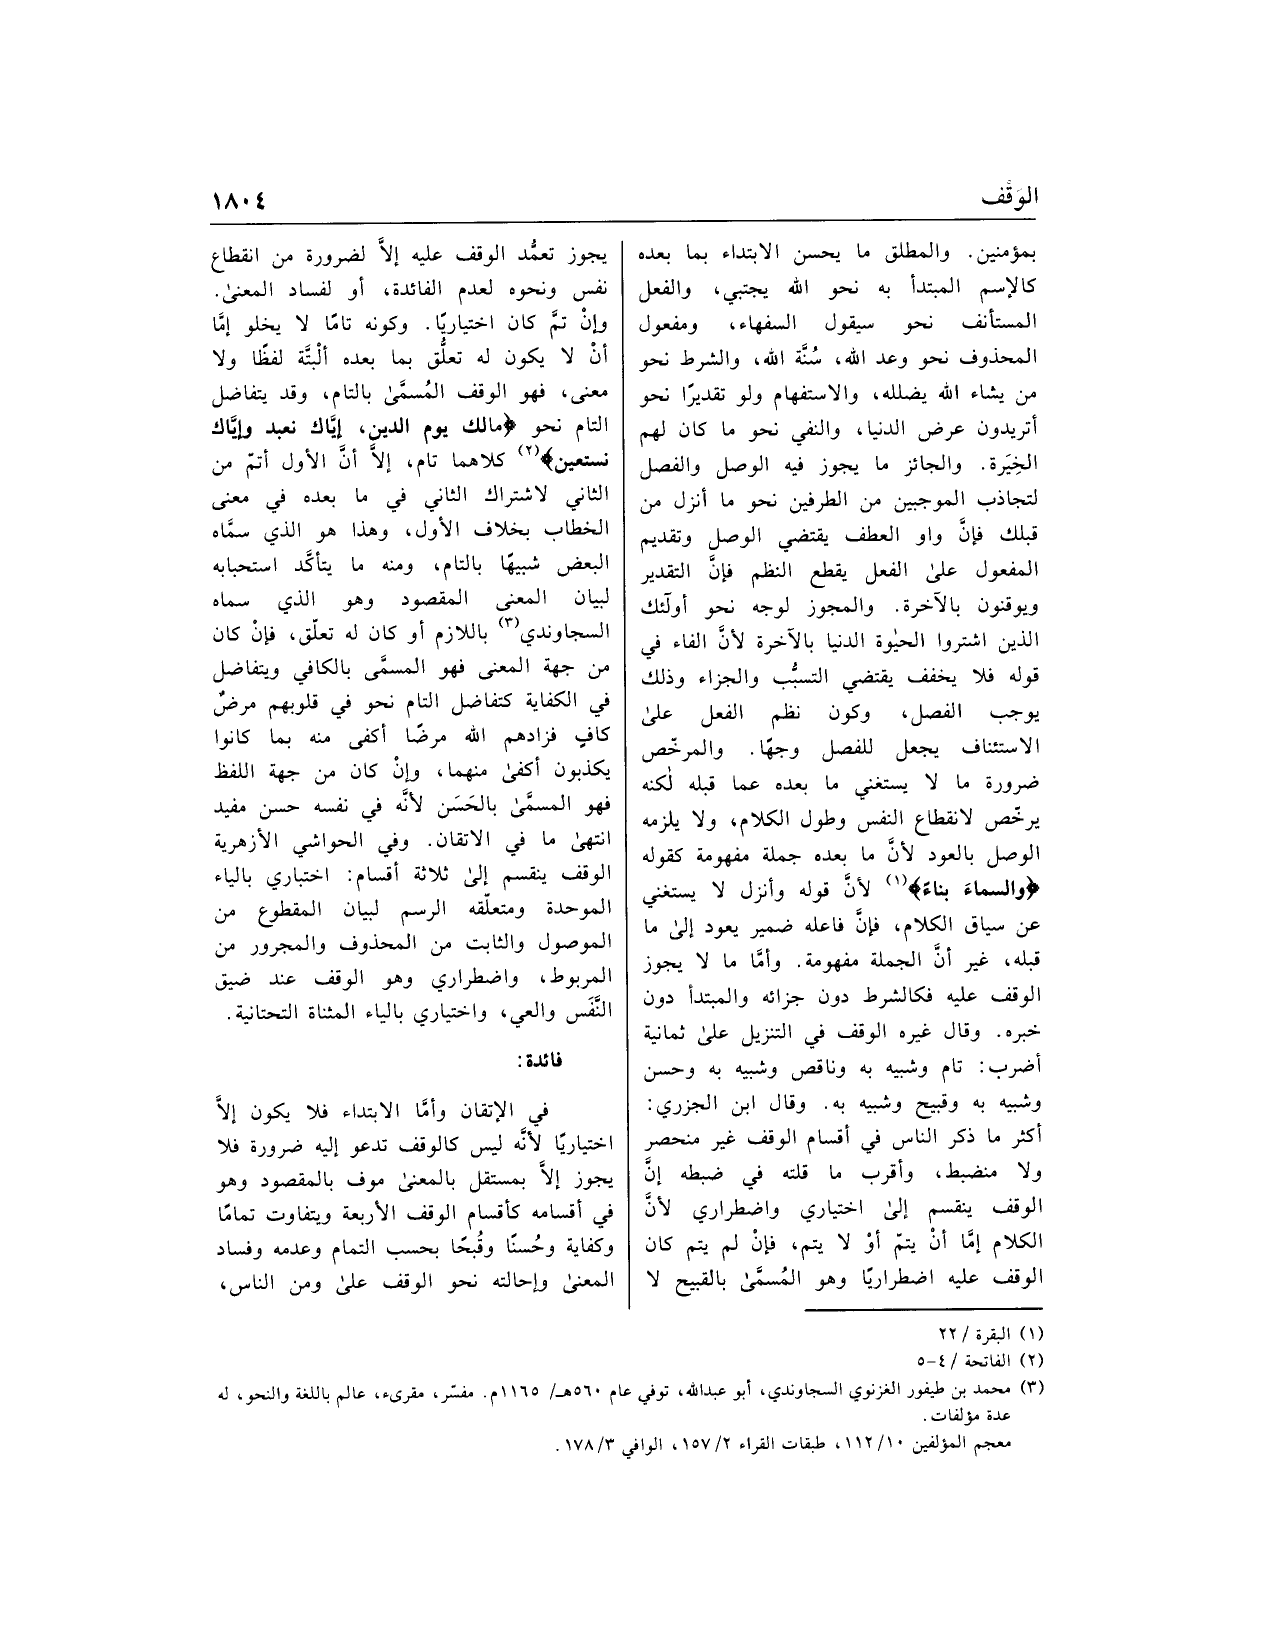 الوَقْف
١٨٠٤
بمؤمنين. والمطلق ما يحسن الابتداء بما بعده
كالإسم المبتدأ به نحو الله يجتبي، والفعل
المستأنف نحو سيقول السفهاء، ومفعول
المحذوف نحو وعد الله، سُنَّة الله، والشرط نحو
من يشاء الله يضلله، والاستفهام ولو تقديرًا نحو
أتريدون عرض الدنيا، والنفي نحو ما كان لهم
الخِيَرة. والجائز ما يجوز فيه الوصل والفصل
لتجاذب الموجبين من الطرفين نحو ما أنزل من
قبلك فإنَّ واو العطف يقتضي الوصل وتقديم
المفعول علىٰ الفعل يقطع النظم فإنَّ التقدير
ويوقنون بالآخرة. والمجوز لوجه نحو أولٓئك
الذين اشتروا الحيٰوة الدنيا بالآخرة لأنَّ الفاء في
قوله فلا يخفف يقتضي التسبُّب والجزاء وذلك
يوجب الفصل، وكون نظم الفعل علىٰ
الاستئناف يجعل للفصل وجهًا. والمرخّص
ضرورة ما لا يستغني ما بعده عما قبله لٰكنه
يرخّص لانقطاع النفس وطول الكلام، ولا يلزمه
الوصل بالعود لأنَّ ما بعده جملة مفهومة كقوله
﴿والسماءَ بناءً﴾(١) لأنَّ قوله وأنزل لا يستغني
عن سياق الكلام، فإنَّ فاعله ضمير يعود إلىٰ ما
قبله، غير أنَّ الجملة مفهومة. وأمَّا ما لا يجوز
الوقف عليه فكالشرط دون جزائه والمبتدأ دون
خبره. وقال غيره الوقف في التنزيل علىٰ ثمانية
أضرب: تام وشبيه به وناقص وشبيه به وحسن
وشبيه به وقبيح وشبيه به. وقال ابن الجزري:
أكثر ما ذكر الناس في أقسام الوقف غير منحصر
ولا منضبط، وأقرب ما قلته في ضبطه إنَّ
الوقف ينقسم إلىٰ اختياري واضطراري لأنَّ
الكلام إمَّا أنْ يتمّ أوْ لا يتم، فإنْ لم يتم كان
الوقف عليه اضطراريًا وهو المُسمَّىٰ بالقبيح لا
يجوز تعمُّد الوقف عليه إلاَّ لضرورة من انقطاع
نفس ونحوه لعدم الفائدة، أو لفساد المعنىٰ.
وإنْ تمَّ كان اختياريًا. وكونه تامًا لا يخلو إمَّا
أنْ لا يكون له تعلُّق بما بعده ألْبتَّة لفظًا ولا
معنى، فهو الوقف المُسمَّىٰ بالتام، وقد يتفاضل
التام نحو ﴿مالك يوم الدين، إيَّاك نعبد وإيَّاك
نستعين﴾(٢) كلاهما تام، إلاَّ أنَّ الأول أتمّ من
الثاني لاشتراك الثاني في ما بعده في معنى
الخطاب بخلاف الأول، وهذا هو الذي سمَّاه
البعض شبيهًا بالتام، ومنه ما يتأكَّد استحبابه
لبيان المعنى المقصود وهو الذي سماه
السجاوندي(٣) باللازم أو كان له تعلّق، فإنْ كان
من جهة المعنى فهو المسمَّى بالكافي ويتفاضل
في الكفاية كتفاضل التام نحو في قلوبهم مرضٌ
كافٍ فزادهم الله مرضًا أكفى منه بما كانوا
يكذبون أكفىٰ منهما، وإنْ كان من جهة اللفظ
فهو المسمَّىٰ بالحَسَن لأنَّه في نفسه حسن مفيد
انتهىٰ ما في الاتقان. وفي الحواشي الأزهرية
الوقف ينقسم إلىٰ ثلاثة أقسام: اختباري بالباء
الموحدة ومتعلّقه الرسم لبيان المقطوع من
الموصول والثابت من المحذوف والمجرور من
المربوط، واضطراري وهو الوقف عند ضيق
النَّفَس والعي، واختياري بالياء المثناة التحتانية.
فائدة:
في الإتقان وأمَّا الابتداء فلا يكون إلاَّ
اختياريًا لأنَّه ليس كالوقف تدعو إليه ضرورة فلا
يجوز إلاَّ بمستقل بالمعنىٰ موف بالمقصود وهو
في أقسامه كأقسام الوقف الأربعة ويتفاوت تمامًا
وكفاية وحُسنًا وقُبحًا بحسب التمام وعدمه وفساد
المعنىٰ وإحالته نحو الوقف علىٰ ومن الناس،
(١) البقرة / ٢٢
(٢) الفاتحة / ٤-٥
(٣) محمد بن طيفور الغزنوي السجاوندي، أبو عبدالله، توفي عام ٥٦٠هـ/ ١١٦٥م. مفسّر، مقرىء، عالم باللغة والنحو، له
عدة مؤلفات.
معجم المؤلفين ١١٢/١٠، طبقات القراء ١٥٧/٢، الوافي ١٧٨/٣.